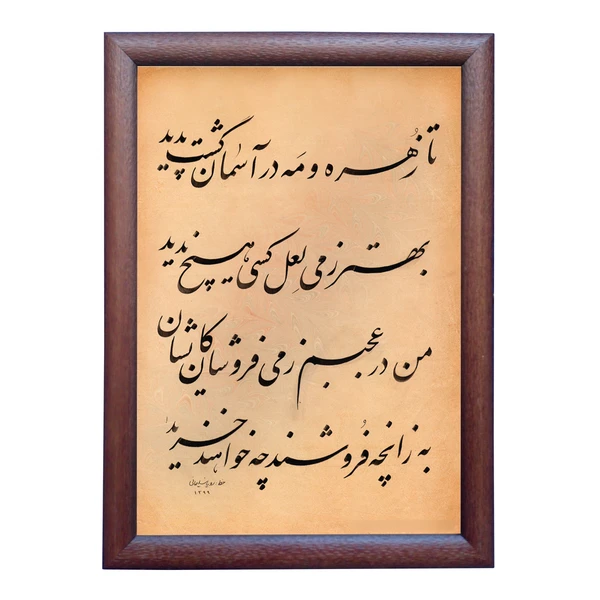 تا زُهره و مَه در آسمان گشت پدید
بهتر ز می لعل کسی هیچ ندید
من در عجبم ز می فروشان کایشان
به زانچه فُروشند چه خواهند خرید
۱۳۹۹